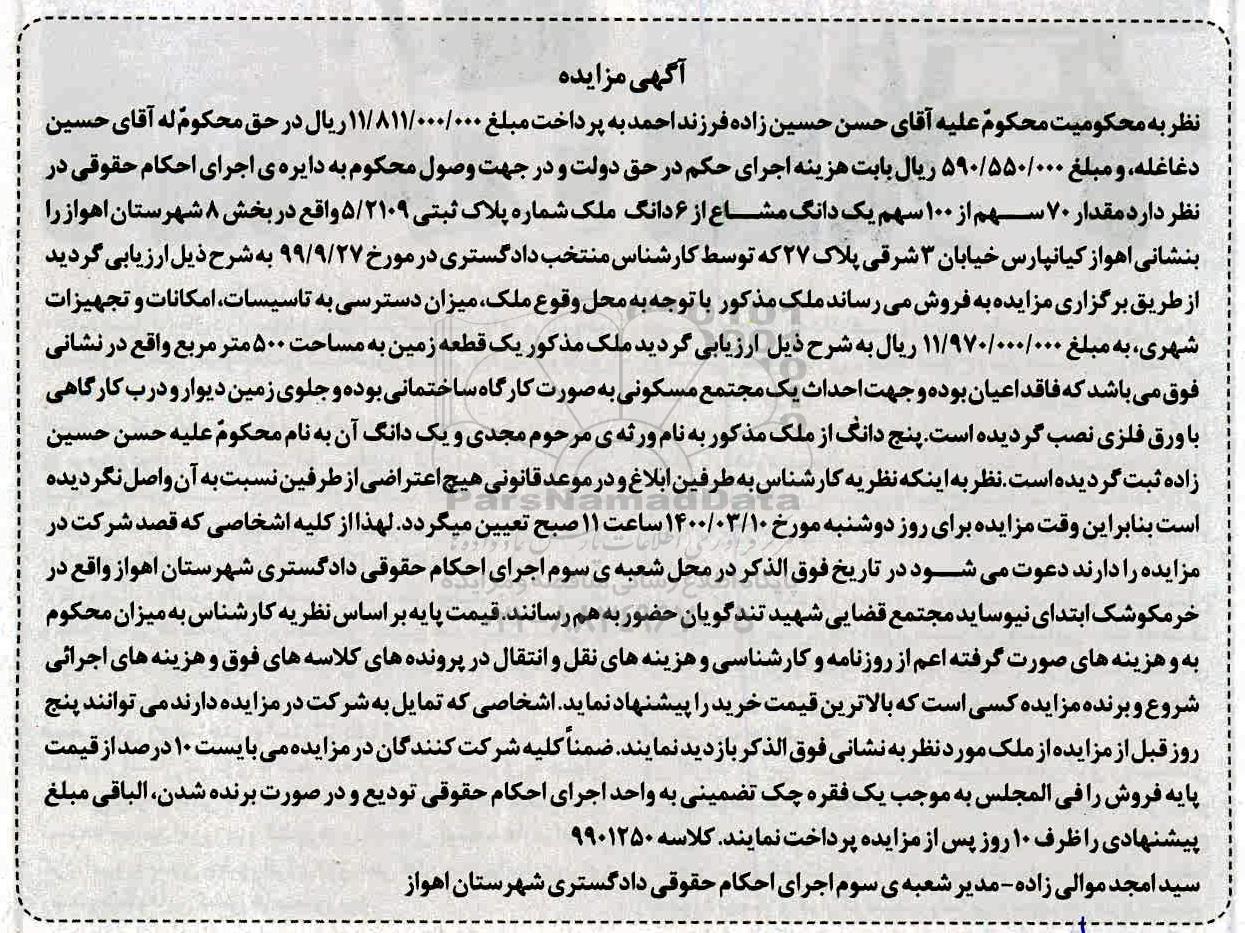 آگهی مزایده
نظر به محکومیت محکومٌ علیه آقای حسن حسین زاده فرزند احمد به پرداخت مبلغ ۱۱/۸۱۱/۰۰۰/۰۰۰ ریال در حق محکومٌ له آقای حسین
دغاغله، و مبلغ ۵۹۰/۵۵۰/۰۰۰ ریال بابت هزینه اجرای حکم در حق دولت و در جهت وصول محکوم به دایره ی اجرای احکام حقوقی در
نظر دارد مقدار ۷۰ سهم از ۱۰۰ سهم یک دانگ مشاع از ۶ دانگ ملک شماره پلاک ثبتی ۵/۲۱۰۹ واقع در بخش ۸ شهرستان اهواز را
بنشانی اهواز کیانپارس خیابان ۳ شرقی پلاک ۲۷ که توسط کارشناس منتخب دادگستری در مورخ ۹۹/۹/۲۷ به شرح ذیل ارزیابی گردید
از طریق برگزاری مزایده به فروش می رساند ملک مذکور با توجه به محل وقوع ملک، میزان دسترسی به تاسیسات، امکانات و تجهیزات
شهری، به مبلغ ۱۱/۹۷۰/۰۰۰/۰۰۰ ریال به شرح ذیل ارزیابی گردید ملک مذکور یک قطعه زمین به مساحت ۵۰۰ متر مربع واقع در نشانی
فوق می باشد که فاقد اعیان بوده و جهت احداث یک مجتمع مسکونی به صورت کارگاه ساختمانی بوده و جلوی زمین دیوار و درب کارگاهی
با ورق فلزی نصب گردیده است. پنج دانگ از ملک مذکور به نام ورثه ی مرحوم مجدی و یک دانگ آن به نام محکومٌ علیه حسن حسین
زاده ثبت گردیده است. نظر به اینکه نظریه کارشناس به طرفین ابلاغ و در موعد قانونی هیچ اعتراضی از طرفین نسبت به آن واصل نگردیده
ParsNamadData
است بنابراین وقت مزایده برای روز دوشنبه مورخ ۱۴۰۰/۰۳/۱۰ ساعت ۱۱ صبح تعیین میگردد. لهذا از کلیه اشخاصی که قصد شرکت در
مزایده را دارند دعوت می شود در تاریخ فوق الذکر در محل شعبه ی سوم اجرای احکام حقوقی دادگستری شهرستان اهواز واقع در
خرمکوشک ابتدای نیوساید مجتمع قضایی شهید تندگویان حضور به هم رسانند. قیمت پایه بر اساس نظریه کارشناس به میزان محکوم
به و هزینه های صورت گرفته اعم از روزنامه و کارشناسی و هزینه های نقل و انتقال در پرونده های کلاسه های فوق و هزینه های اجرائی
شروع و برنده مزایده کسی است که بالاترین قیمت خرید را پیشنهاد نماید. اشخاصی که تمایل به شرکت در مزایده دارند می توانند پنج
روز قبل از مزایده از ملک مورد نظر به نشانی فوق الذکر بازدید نمایند. ضمناً کلیه شرکت کنندگان در مزایده می بایست ۱۰ درصد از قیمت
پایه فروش را فی المجلس به موجب یک فقره چک تضمینی به واحد اجرای احکام حقوقی تودیع و در صورت برنده شدن، الباقی مبلغ
پیشنهادی را ظرف ۱۰ روز پس از مزایده پرداخت نمایند. کلاسه ۹۹۰۱۲۵۰
سید امجد موالی زاده - مدیر شعبه ی سوم اجرای احکام حقوقی دادگستری شهرستان اهواز